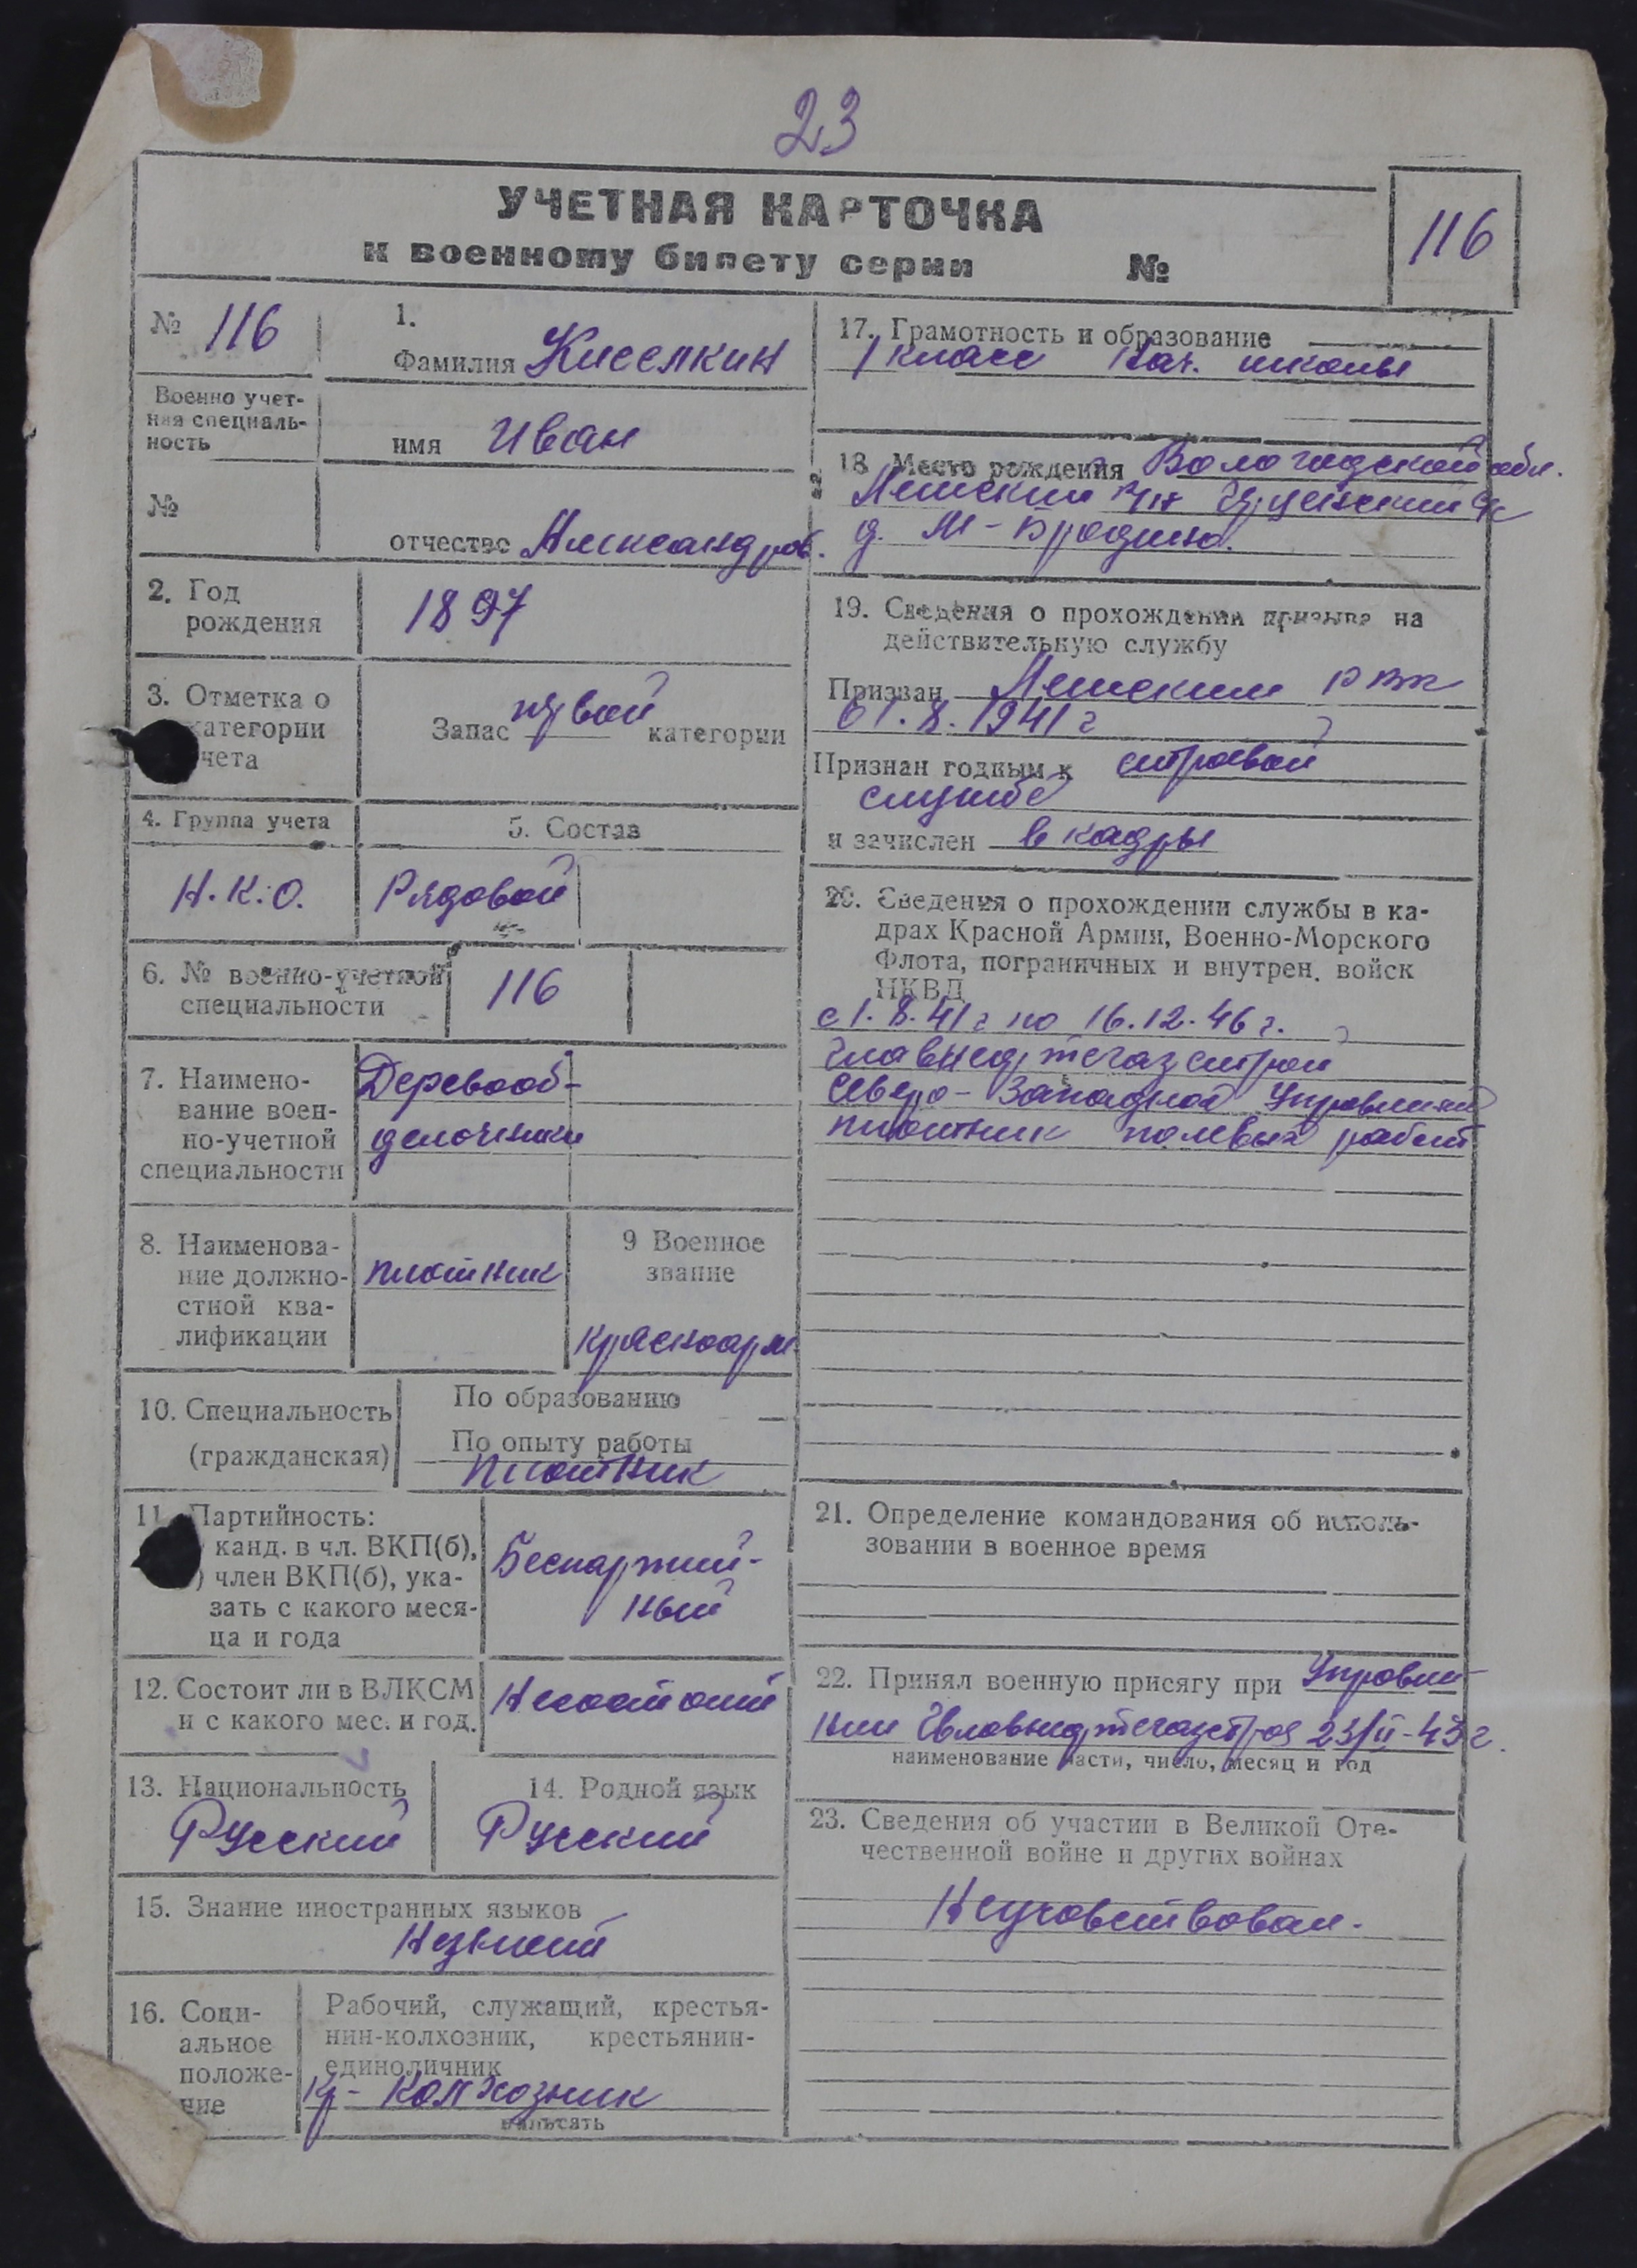 23
УЧЕТНАЯ КАРТОЧКА
к военному билету серии №
116
№ 116
1.
Фамилия Киселкин
Военно учет-
ная специаль-
ность
имя Иван
№
отчество Александров.
2. Год
рождения
1897
3. Отметка о
категории
чета
Запас первой категории
4. Группа учета
5. Состав
Н.К.О.
Рядовой
6. № военно-учетной
специальности
116
7. Наимено-
вание воен-
но-учетной
специальности
Деревооб-
делочники
8. Наименова-
ние должно-
стной ква-
лификации
плотник
9 Военное
звание
красноарм.
10. Специальность
(гражданская)
По образованию —
По опыту работы
плотник
11. Партийность:
) канд. в чл. ВКП(б),
) член ВКП(б), ука-
зать с какого меся-
ца и года
Беспартий-
ный
12. Состоит ли в ВЛКСМ
и с какого мес. и год.
Несостоит
13. Национальность
Русский
14. Родной язык
Русский
15. Знание иностранных языков
Незнает
16. Соци-
альное
положе-
ние
Рабочий, служащий, крестья-
нин-колхозник, крестьянин-
единоличник
кр- колхозник
вписать
17. Грамотность и образование
1 класс нач. школы
18. Место рождения Вологодской обл.
р/н с/с
д. М-Бродино.
19. Сведения о прохождении призыва на
действительную службу
Призван РВК
01.8.1941г
Признан годным к строевой
службе
и зачислен в кадры
20. Сведения о прохождении службы в ка-
драх Красной Армии, Военно-Морского
Флота, пограничных и внутрен. войск
НКВД
с 1.8.41г по 16.12.46г.
Главнефтегазстрой
Северо-Западное Управление
плотник полевых работ
21. Определение командования об исполь-
зовании в военное время
22. Принял военную присягу при Управле-
нии Главнефтегазстроя 23/II-43г.
наименование части, число, месяц и год
23. Сведения об участии в Великой Оте-
чественной войне и других войнах
Неучавствовал.